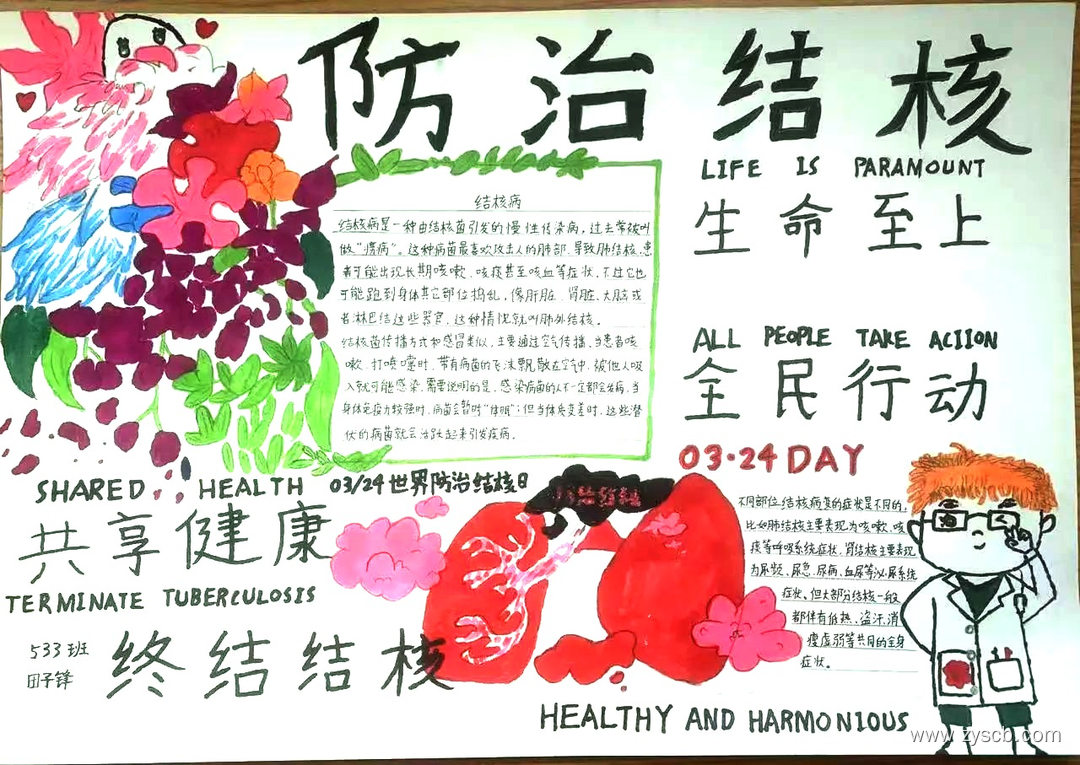 防治结核
LIFE IS PARAMOUNT
生命至上
结核病
结核病是一种由结核菌引发的慢性传染病，过去常被叫
做"痨病"。这种病菌最喜欢攻击人的肺部，导致肺结核，患
者可能出现长期咳嗽、咳痰甚至咳血等症状，不过它也
可能跑到身体其它部位捣乱，像肝脏、肾脏、大脑或
者淋巴结这些器官，这种情况就叫肺外结核。
结核菌传播方式和感冒类似，主要通过空气传播，当患者咳
嗽、打喷嚏时，带有病菌的飞沫飘散在空气中，被他人吸
入就可能感染，需要说明的是，感染病菌的人不一定都会发病，当
身体免疫力较强时，病菌会暂时"休眠"；但当体质变差时，这些潜
伏的病菌就会活跃起来引发疾病。
ALL PEOPLE TAKE ACIION
全民行动
03·24 DAY
SHARED HEALTH
03/24世界防治结核日
共享健康
防治结核
TERMINATE TUBERCULOSIS
533班
田子锋
终结结核
不同部位结核病变的症状是不同的，
比如肺结核主要表现为咳嗽、咳
痰等呼吸系统症状，肾结核主要表现
为尿频、尿急、尿痛、血尿等泌尿系统
症状，但大部分结核一般
都伴有低热、盗汗、消
瘦虚弱等共同的全身
症状。
HEALTHY AND HARMONIOUS
www.zyscb.com